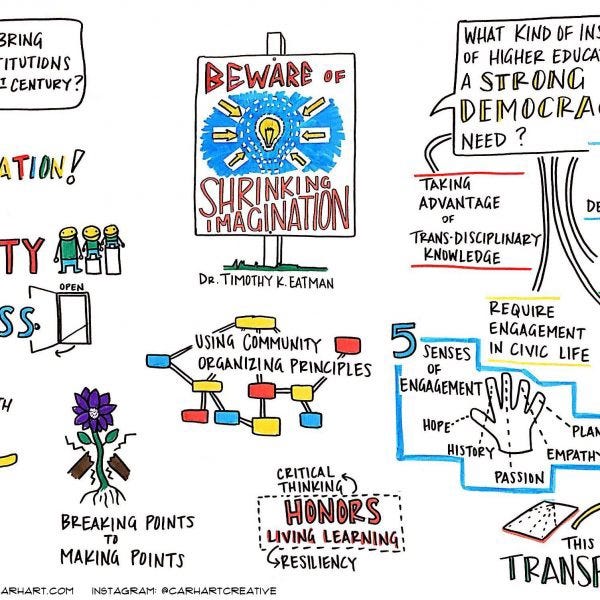 BRING
CENTURY?
BEWARE OF
SHRINKING
IMAGINATION
DR. TIMOTHY K. EATMAN
WHAT KIND OF
OF HIGHER
A STRONG
NEED?
TAKING
ADVANTAGE
OF
TRANS-DISCIPLINARY
KNOWLEDGE
REQUIRE
ENGAGEMENT
IN CIVIC LIFE
OPEN
USING COMMUNITY
ORGANIZING PRINCIPLES
5 SENSES
OF
ENGAGEMENT
HOPE
HISTORY
PASSION
EMPATHY
PLAN
BREAKING POINTS
TO
MAKING POINTS
CRITICAL
THINKING
HONORS
LIVING LEARNING
RESILIENCY
THIS
ARHART.COM INSTAGRAM: @CARHARTCREATIVE